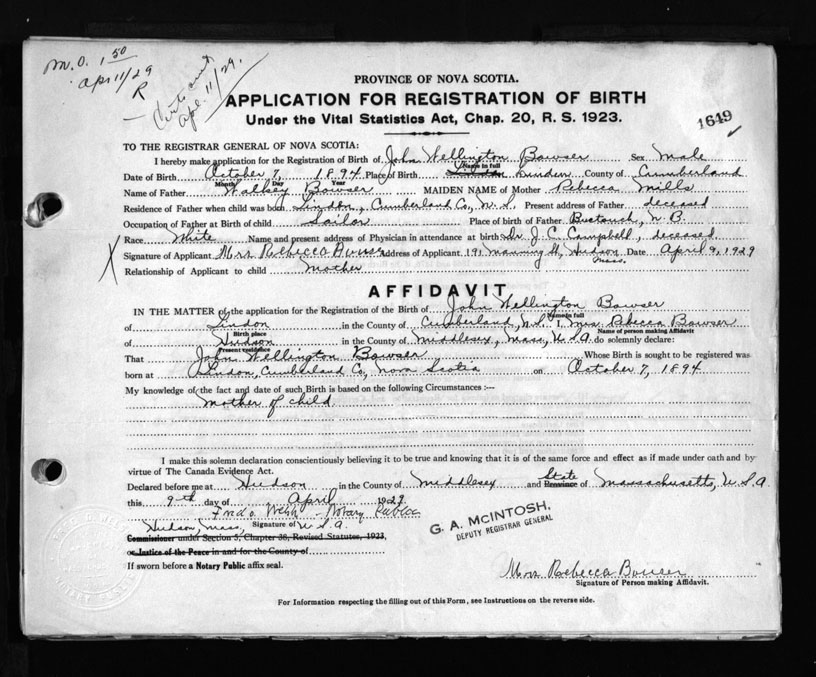 M.O. 1 50
Apr 11/29
R
Apl. 11/29.
PROVINCE OF NOVA SCOTIA.
APPLICATION FOR REGISTRATION OF BIRTH
Under the Vital Statistics Act, Chap. 20, R. S. 1923.
1649
TO THE REGISTRAR GENERAL OF NOVA SCOTIA:
I hereby make application for the Registration of Birth of John Wellington Bowser Sex Male
Name in full
Date of Birth October 7, 1894 Place of Birth Linden County of Cumberland
Month Day Year
Name of Father Bowser MAIDEN NAME of Mother Rebecca Mills
Residence of Father when child was born Lindon, Cumberland Co., N.S. Present address of Father deceased
Occupation of Father at Birth of child Sailor Place of birth of Father Buctouch, N.B.
Race White Name and present address of Physician in attendance at birth Dr. J. C. Campbell, deceased
Signature of Applicant Mrs Rebecca Bowser Address of Applicant 191 Manning St, Hudson Mass. Date April 9, 1929
Relationship of Applicant to child Mother
AFFIDAVIT
IN THE MATTER of the application for the Registration of Birth of John Wellington Bowser
Name in full
of Lindon in the County of Cumberland, N.S. I, Mrs Rebecca Bowser
Birth place Name of person making Affidavit
of Hudson in the County of Middlesex, Mass, U.S.A. do solemnly declare:
Present residence
That John Wellington Bowser Whose Birth is sought to be registered was
born at Lindon, Cumberland Co, Nova Scotia on October 7, 1894
My knowledge of the fact and date of such Birth is based on the following Circumstances :—
Mother of child
I make this solemn declaration conscientiously believing it to be true and knowing that it is of the same force and effect as if made under oath and by
virtue of The Canada Evidence Act.
Declared before me at Hudson in the County of Middlesex and State Province of Massachusetts, U.S.A
this 9th day of April 1929
Notary Public
Hudson, Mass, Signature of U.S.A.
G. A. McINTOSH,
DEPUTY REGISTRAR GENERAL
Commissioner under Section 5, Chapter 38, Revised Statutes, 1923,
or Justice of the Peace in and for the County of
If sworn before a Notary Public affix seal.
Mrs Rebecca Bowser
Signature of Person making Affidavit.
For Information respecting the filling out of this Form, see Instructions on the reverse side.